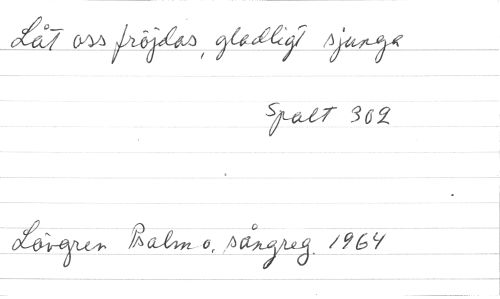 Låt oss fröjdas, gladligt sjunga
Spalt 302
Lövgren Psalm o. sångreg. 1964